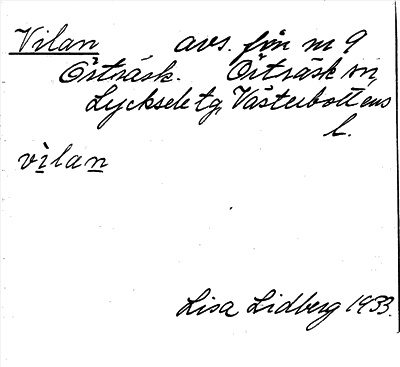 Vilan avs. från nr 9
Örträsk. Örträsk sn,
Lycksele tg, Västerbottens
l.
vilan
Lisa Lidberg 1933.